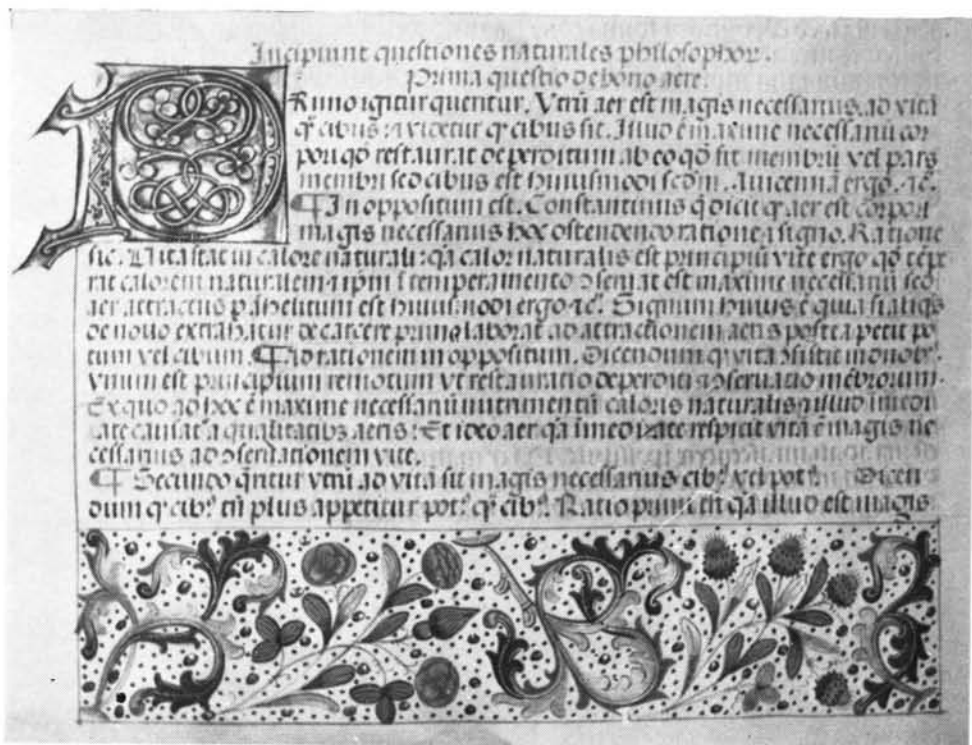 Incipiunt questiones naturales philosophoꝝ.
Prima questio de bono aere.
PRimo igitur queritur. Vtrũ aer est magis necessarius ad vitã
qͣ cibus: ⁊ videtur ꝙ cibus sit. Illud ẽ maxime necessariũ cor
pori qd̃ restaurat deperditum ab eo qd̃ fit membrũ vel pars
membri sed cibus est huiusmodi scdm̃. Auicennã ergo. ⁊c̃.
¶ In oppositum est. Constantinus q̃ dicit ꝙ aer est corpori
magis necessarius hoc ostendendo ratione ⁊ signo. Ratione
sic. Vita stat in calore naturali: qã calor naturalis est principiũ vite ergo qd̃ tẽpe
rat calorem naturalem ⁊ ip̃m ĩ temperamento ↄseruat est maxime necessariũ sed
aer attractus p̱ ãhelitum est huiusmodi ergo ⁊c̃. Signum huius ẽ quia si aliq̃s
de nouo extrahatur de carcere primo laborat ad attractionem aeris postea petit po
tum vel cibum. ¶ Ad rationem in oppositum. Dicendum ꝙ vita ↄsistit in duobꝰ.
vnum est principium remotum vt restauratio deperditi ⁊ ↄseruatio mẽbrorum.
Ex quo ad hoc ẽ maxime necessariũ nutrimentũ caloris naturalis ⁊ illud ĩmedi
ate causatᷣ a qualitatibꝫ aeris: Et ideo aer qã ĩmediate respicit vitã ẽ magis ne
cessarius ad ↄseruationem vite.
¶ Secundo q̃ritur vtrũ ad vitã sit magis necessarius cibꝰ vel potꝰ. Dicen
dum ꝙ cibꝰ: tñ plus appetitur potꝰ qͣ cibꝰ. Ratio primi est qã illud est magis